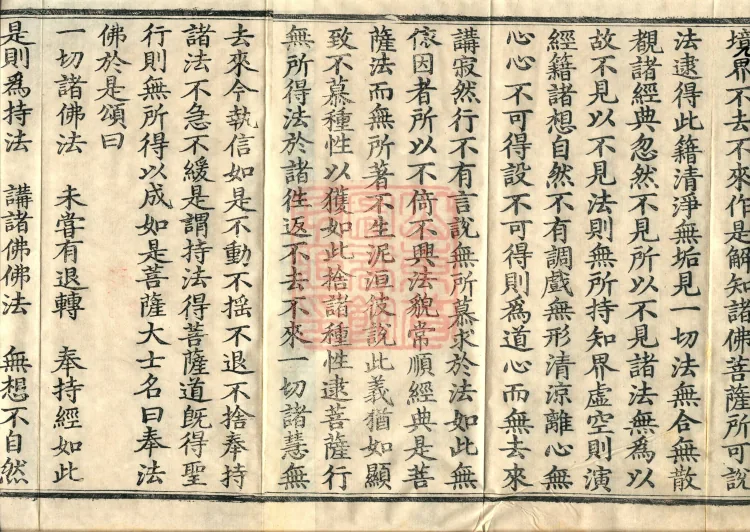 境界不去不來作是解知諸佛菩薩所可說
法逮得此籍清淨無垢見一切法無合無散
覩諸經典忽然不見所以不見諸法無為以
故不見以不見法則無所持知界虛空則演
經籍諸想自然不有調戲無形清涼離心無
心心不可得設不可得則為道心而無去來
講寂然行不有言說無所慕求於法如此無
依因者所以不倚不興法貌常順經典是菩
薩法而無所著不生泥洹彼說此義猶如顯
致不慕種性以獲如此捨諸種性逮菩薩行
無所得法於諸徃返不去不來一切諸慧無
去來今執信如是不動不搖不退不捨奉持
諸法不急不緩是謂持法得菩薩道旣得聖
行則無所得以成如是菩薩大士名曰奉法
佛於是頌曰
一切諸佛法　未甞有退轉　奉持經如此
是則為持法　講諸佛佛法　無想不自然